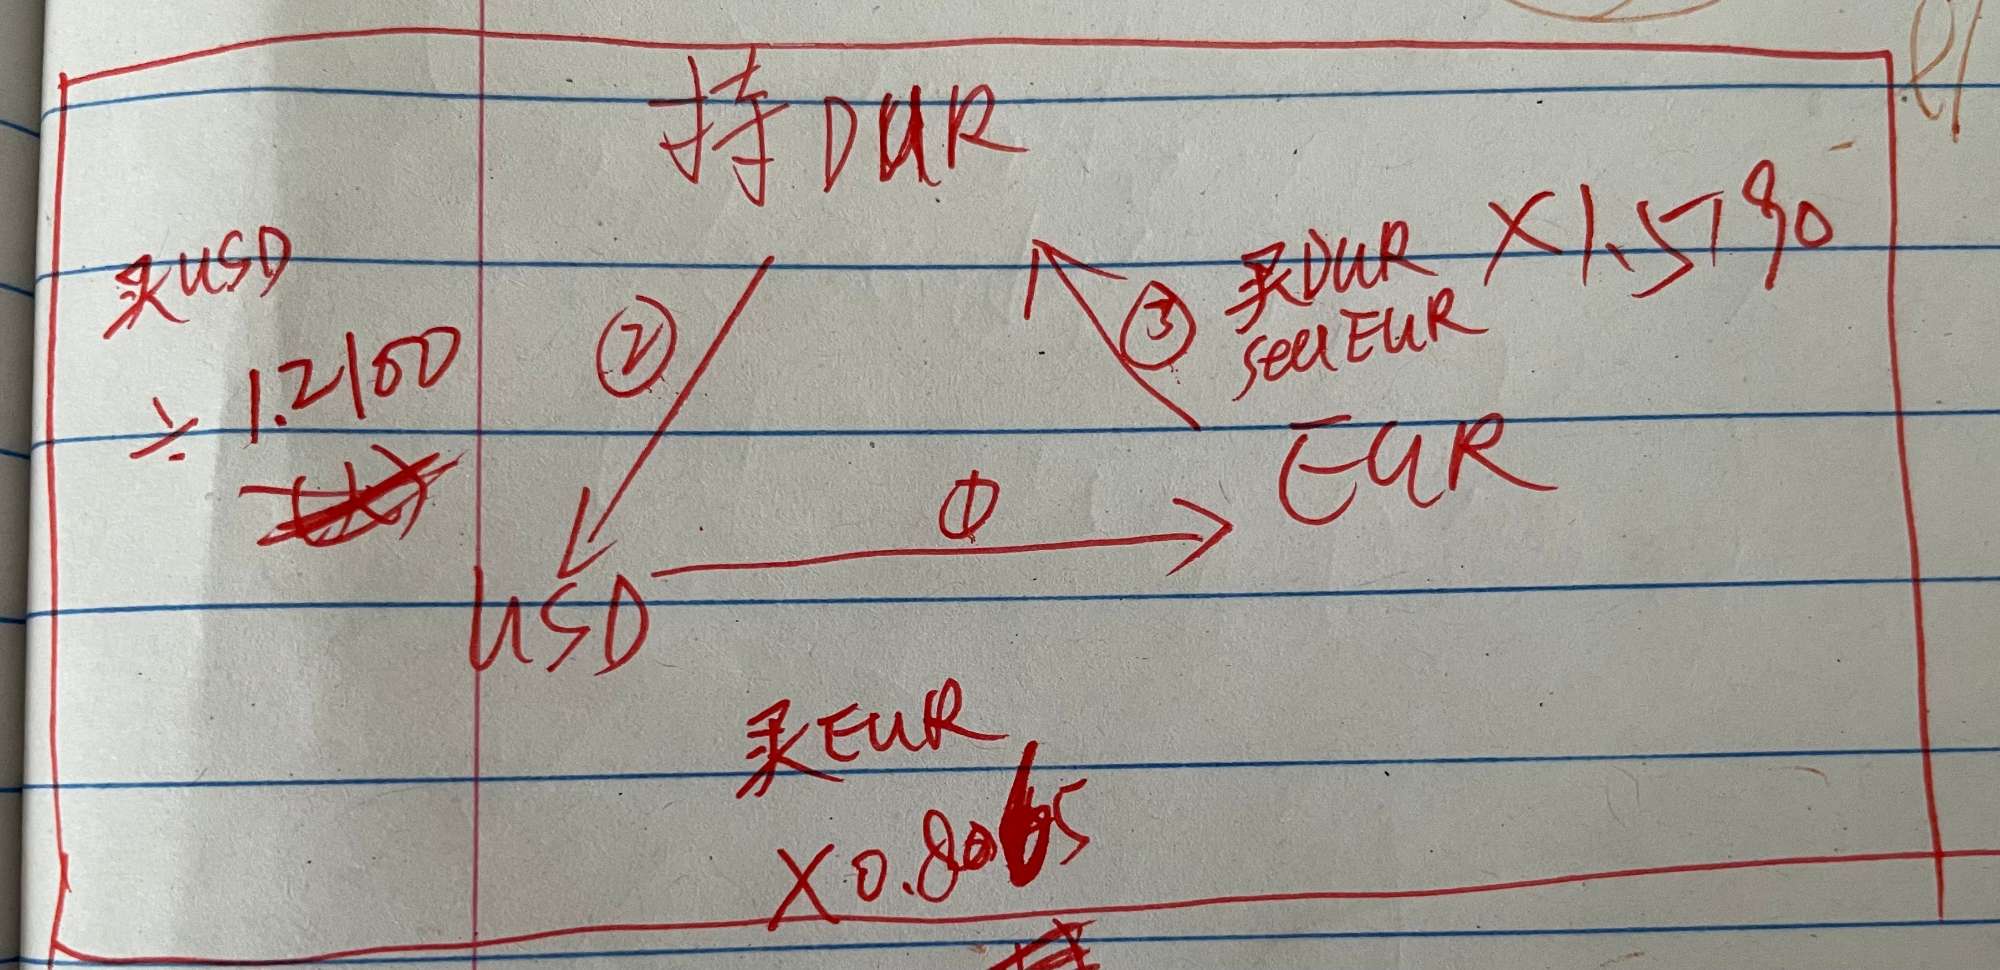 持DUR
买USD
÷ 1.2100
②
③
买DUR ×1.5790
sell EUR
EUR
①
USD
买EUR
×0.8065